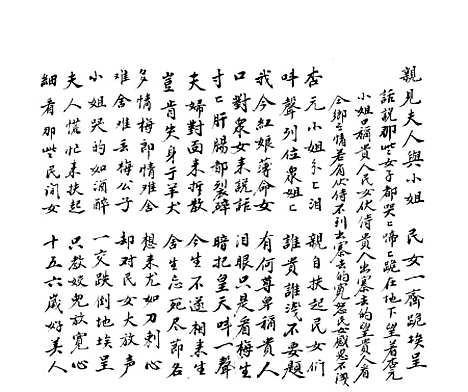 親見夫人與小姐　民女一齊跪埃呈
訴說那些女子都哭〻啼〻跪在地下望着杏元
小姐口稱貴人民女伏侍貴人出塞去的望貴人看
全鄉之情老有伏侍不到去塞去的寬恕民女感恩不淺
杏元小姐分〻泪　親自扶起民女們
叫聲列位衆姐〻　誰貴誰淺不要題
我今紅娘薄命女　有何尊卑稱貴人
口對衆女來說話　泪眼只是看梅生
寸〻肝腸都裂碎　暗把皇天叫一聲
夫婦對面來折散　今生不遂相來生
豈肯失身于羊犬　舍生忘死尽節名
多情梅郎情难舍　想來尤如刀刺心
难舍难丢梅公子　却对民女大放声
小姐哭的如酒醉　一交跌倒地埃呈
夫人慌忙來扶起　只教姣兒放寬心
細看那些民间女　十五六歲好美人